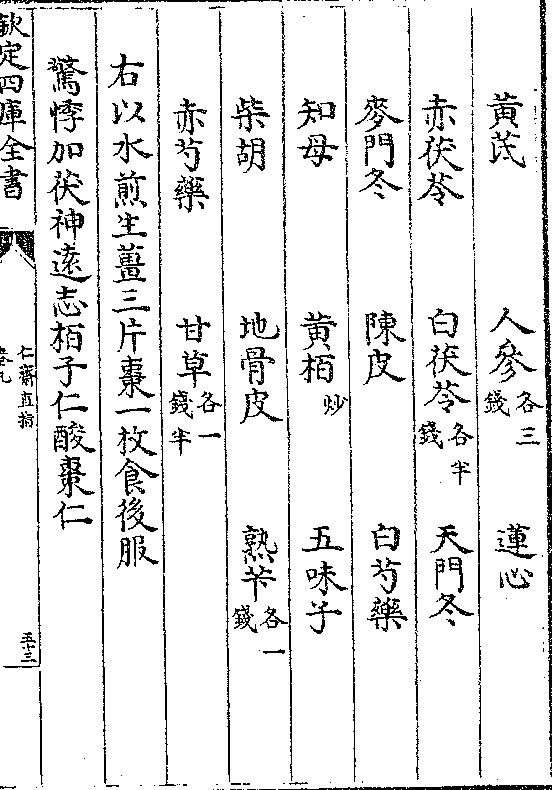 黃芪　人參各三錢　蓮心
赤茯苓　白茯苓各半錢　天門冬
麥門冬　陳皮　白芍藥
知母　黃栢炒　五味子
柴胡　地骨皮　熟苄各一錢
赤芍藥　甘草各一錢半
右以水煎生薑三片棗一枚食後服
驚悸加茯神遠志栢子仁酸棗仁
欽定四庫全書　仁齋直指卷九　五十三